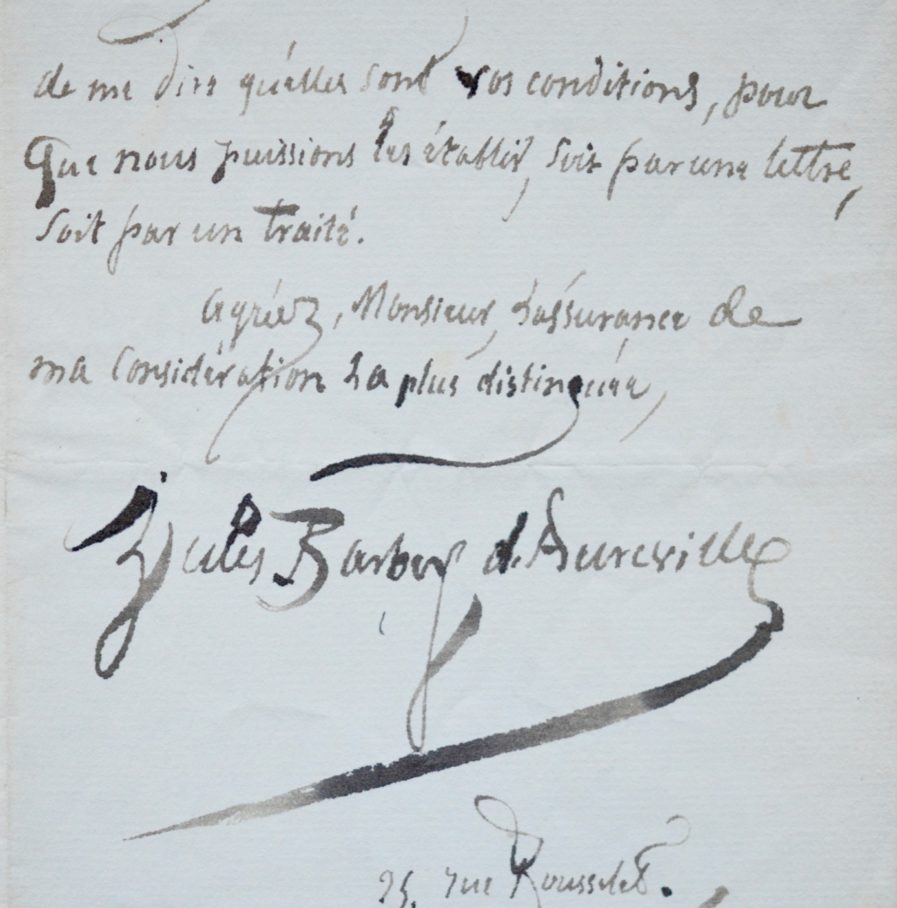 de me dire qu'elles sont vos conditions, pour
que nous puissions les établir, soit par une lettre,
soit par un traité.
Agréez, Monsieur, l'assurance de
ma considération la plus distinguée,
Jules Barbey d'Aurevilly
25, rue Rousselet.